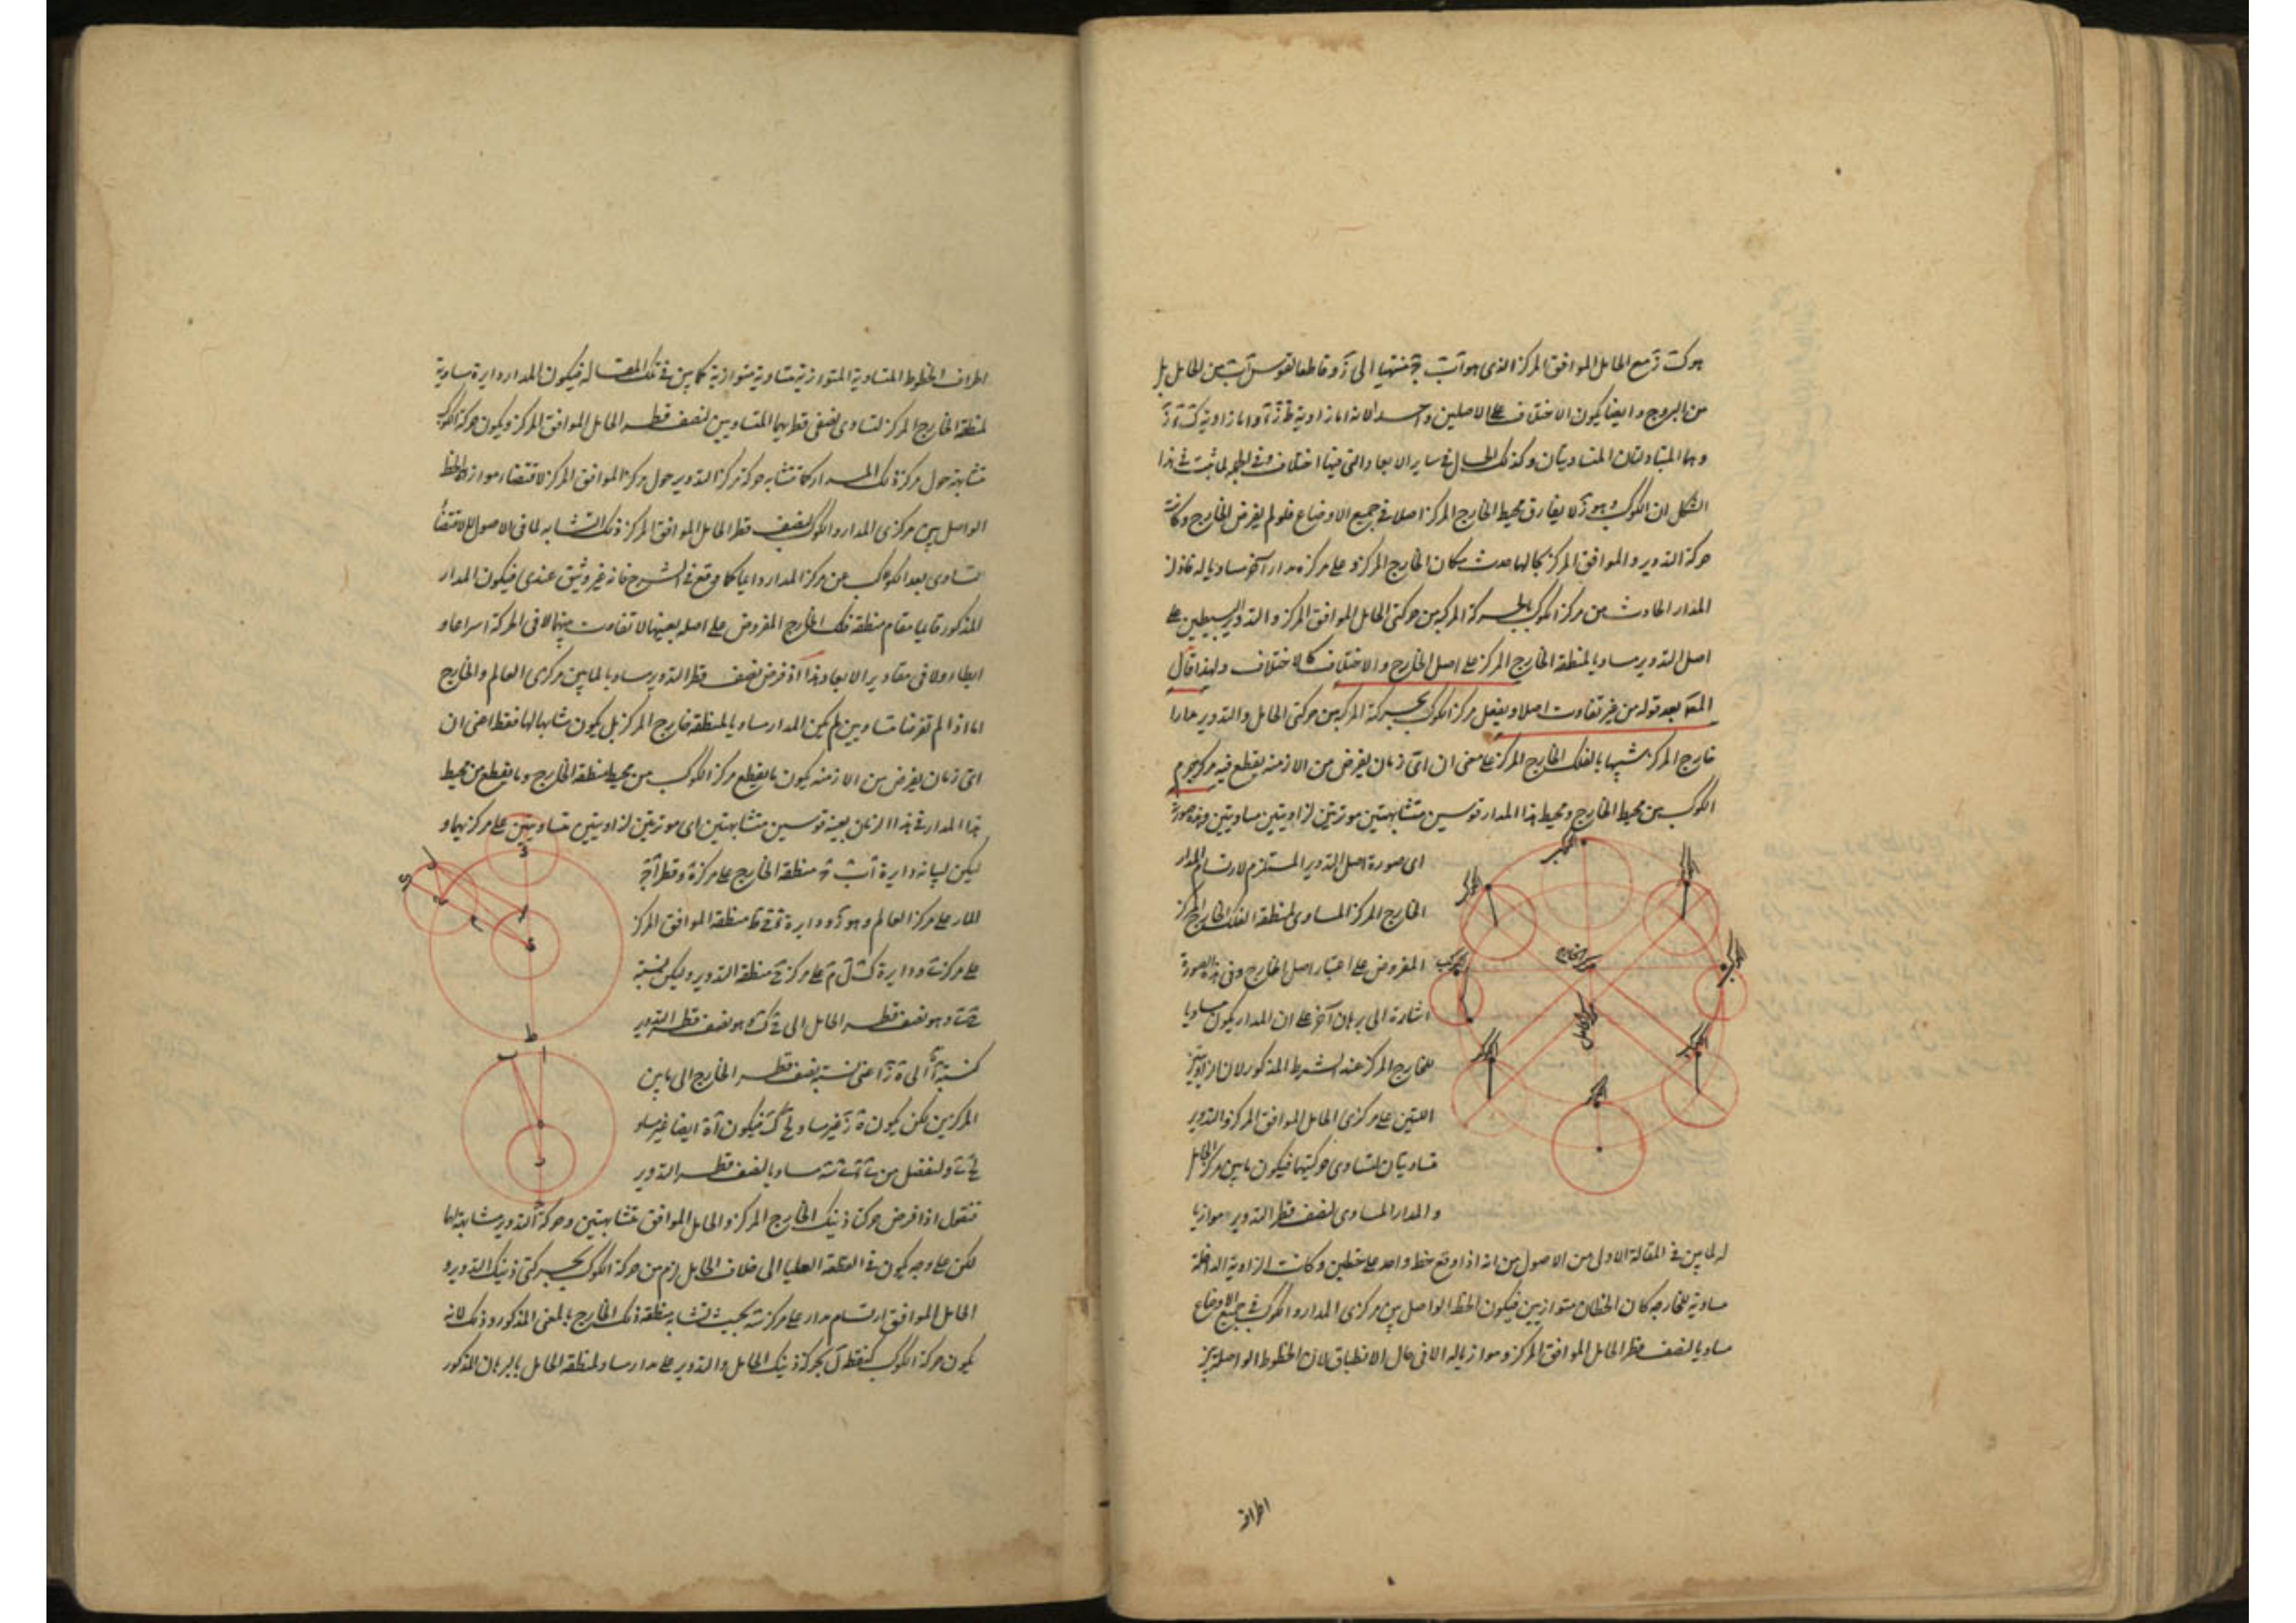 من البروج وايضا يكون الاختلاف على الاصلين واحدا لانه اما زاوية
وهما المتبادلتان المتساويتان وكذلك الحال في ساير الابعاد التي فيها اختلاف
الشكل ان الكوكب وهو لا يفارق محيط الخارج المركز اصلا في جميع الاوضاع فلو لم يفرض الخارج وكانت
حركة التدوير والموافق المركز بحالها حدث مكان الخارج المركز وعلى مركزه مدار آخر مساويا له فاذن
المدار الحادث من مركز الكوكب بالحركة المركبة من حركتي الحامل الموافق المركز والتدوير البسيطين على
اصل التدوير مساويا لمنطقة الخارج المركز على اصل الخارج والاختلاف كالاختلاف ولهذا قال
المصَ بعد قوله من غير تفاوت اصلا ويفعل مركز الكوكب بحركة المركبة من حركتي الحامل والتدوير مدارا
خارج المركز شبيها بالفلك الخارج المركز على معنى ان اىّ زمان يفرض من الازمنة يقطع فيه مركز جرم
الكوكب من محيط الخارج ومحيط هذا المدار قوسين متشابهتين موترتين لزاويتين متساويتين وهذه صورته
اى صورة اصل التدوير المستلزم لارتسام المدار
الخارج المركز المساوى لمنطقة الفلك الخارج المركز
المفروض على اعتبار اصل الخارج وفي هذه الصورة
اشارة الى برهان آخر على ان المدار يكون مساويا
للخارج المركز عند الشرط المذكور لان الزاويتين
اللتين على مركزى الحامل الموافق المركز والتدوير
متساويتان لتساوى حركتيهما فيكون ما بين مركز الحامل
والمدار المساوى لنصف قطر التدوير موازيا
له لما بين في المقالة الاولى من الاصول من انه اذا وقع خط واحد على خطين وكانت الزاوية الداخلة
مساوية للخارجة كان الخطان متوازيين فيكون الخط الواصل بين مركزى المدار والكوكب في جميع الاوضاع
مساويا لنصف قطر الحامل الموافق المركز وموازيا له الا في حال الانطباق لان الخطوط الواصلة بين
مركز الخارج
مركز الحامل
اطراف
اطراف الخطوط المتساوية المتوازية متساوية متوازية كما بين في تلك المقالة فيكون المدار دايرة مساوية
لمنطقة الخارج المركز لتساوى نصفى قطريهما المتساويين لنصف قطر الحامل الموافق المركز ويكون حركة الكوكب
متشابهة حول مركز ذلك المدار كما تشابه حركة مركز التدوير حول مركز الموافق المركز لاقتضاء موازاة الخط
الواصل بين مركزى المدار والكوكب لنصف قطر الحامل الموافق المركز ذلك التشابه لما في الاصول لا لاقتضاء
تساوى بعد الكوكب عن مركز المدار دايما كما وقع في الشرح فانه غير وثيق عندى فيكون المدار
المذكور قايما مقام منطقة فلك الخارج المفروض على اصله بعينها لا تفاوت بينهما لا في الحركة اسراعا و
ابطاء ولا في مقادير الابعاد هذا اذا فرض نصف قطر التدوير مساويا لما بين مركزى العالم والخارج
اما اذا لم تفرضا متساويين لم يكن المدار مساويا لمنطقة خارج المركز بل يكون مشابها لها فقط اعنى ان
اىّ زمان يفرض من الازمنة يكون ما يقطع مركز الكوكب من محيط منطقة الخارج وما يقطع من محيط
هذا المدار في هذا الزمان بعينه قوسين متشابهتين اى موترتين لزاويتين متساويتين على مركزيهما و
ليكن لبيانه دايرة منطقة الخارج على مركز وقطر
المار على مركز العالم وهو ودايرة منطقة الموافق المركز
على مركز ودايرة على مركز منطقة التدوير وليكن نسبة
وهو نصف قطر الحامل الى وهو نصف قطر التدوير
كنسبة الى اعنى نسبة نصف قطر الخارج الى ما بين
المركزين لكن يكون غير مساو فيكون ايضا غير مساو
ولنفصل من مساويا لنصف قطر التدوير
فنقول اذا فرض حركتا ذينك الخارج المركز والحامل الموافق متشابهتين وحركة التدوير مشابهة لها
لكن على وجه يكون في القطعة العليا الى خلاف الحامل لزم من حركة الكوكب بحركتى ذينك التدوير و
الحامل الموافق ارتسام مدار على مركز بحيث تشابه منطقة ذلك الخارج بالمعنى المذكور وذلك لانه
يكون حركة الكوكب كنقطة بحركة ذينك الحامل والتدوير على مدار مساو لمنطقة الحامل بالبرهان المذكور